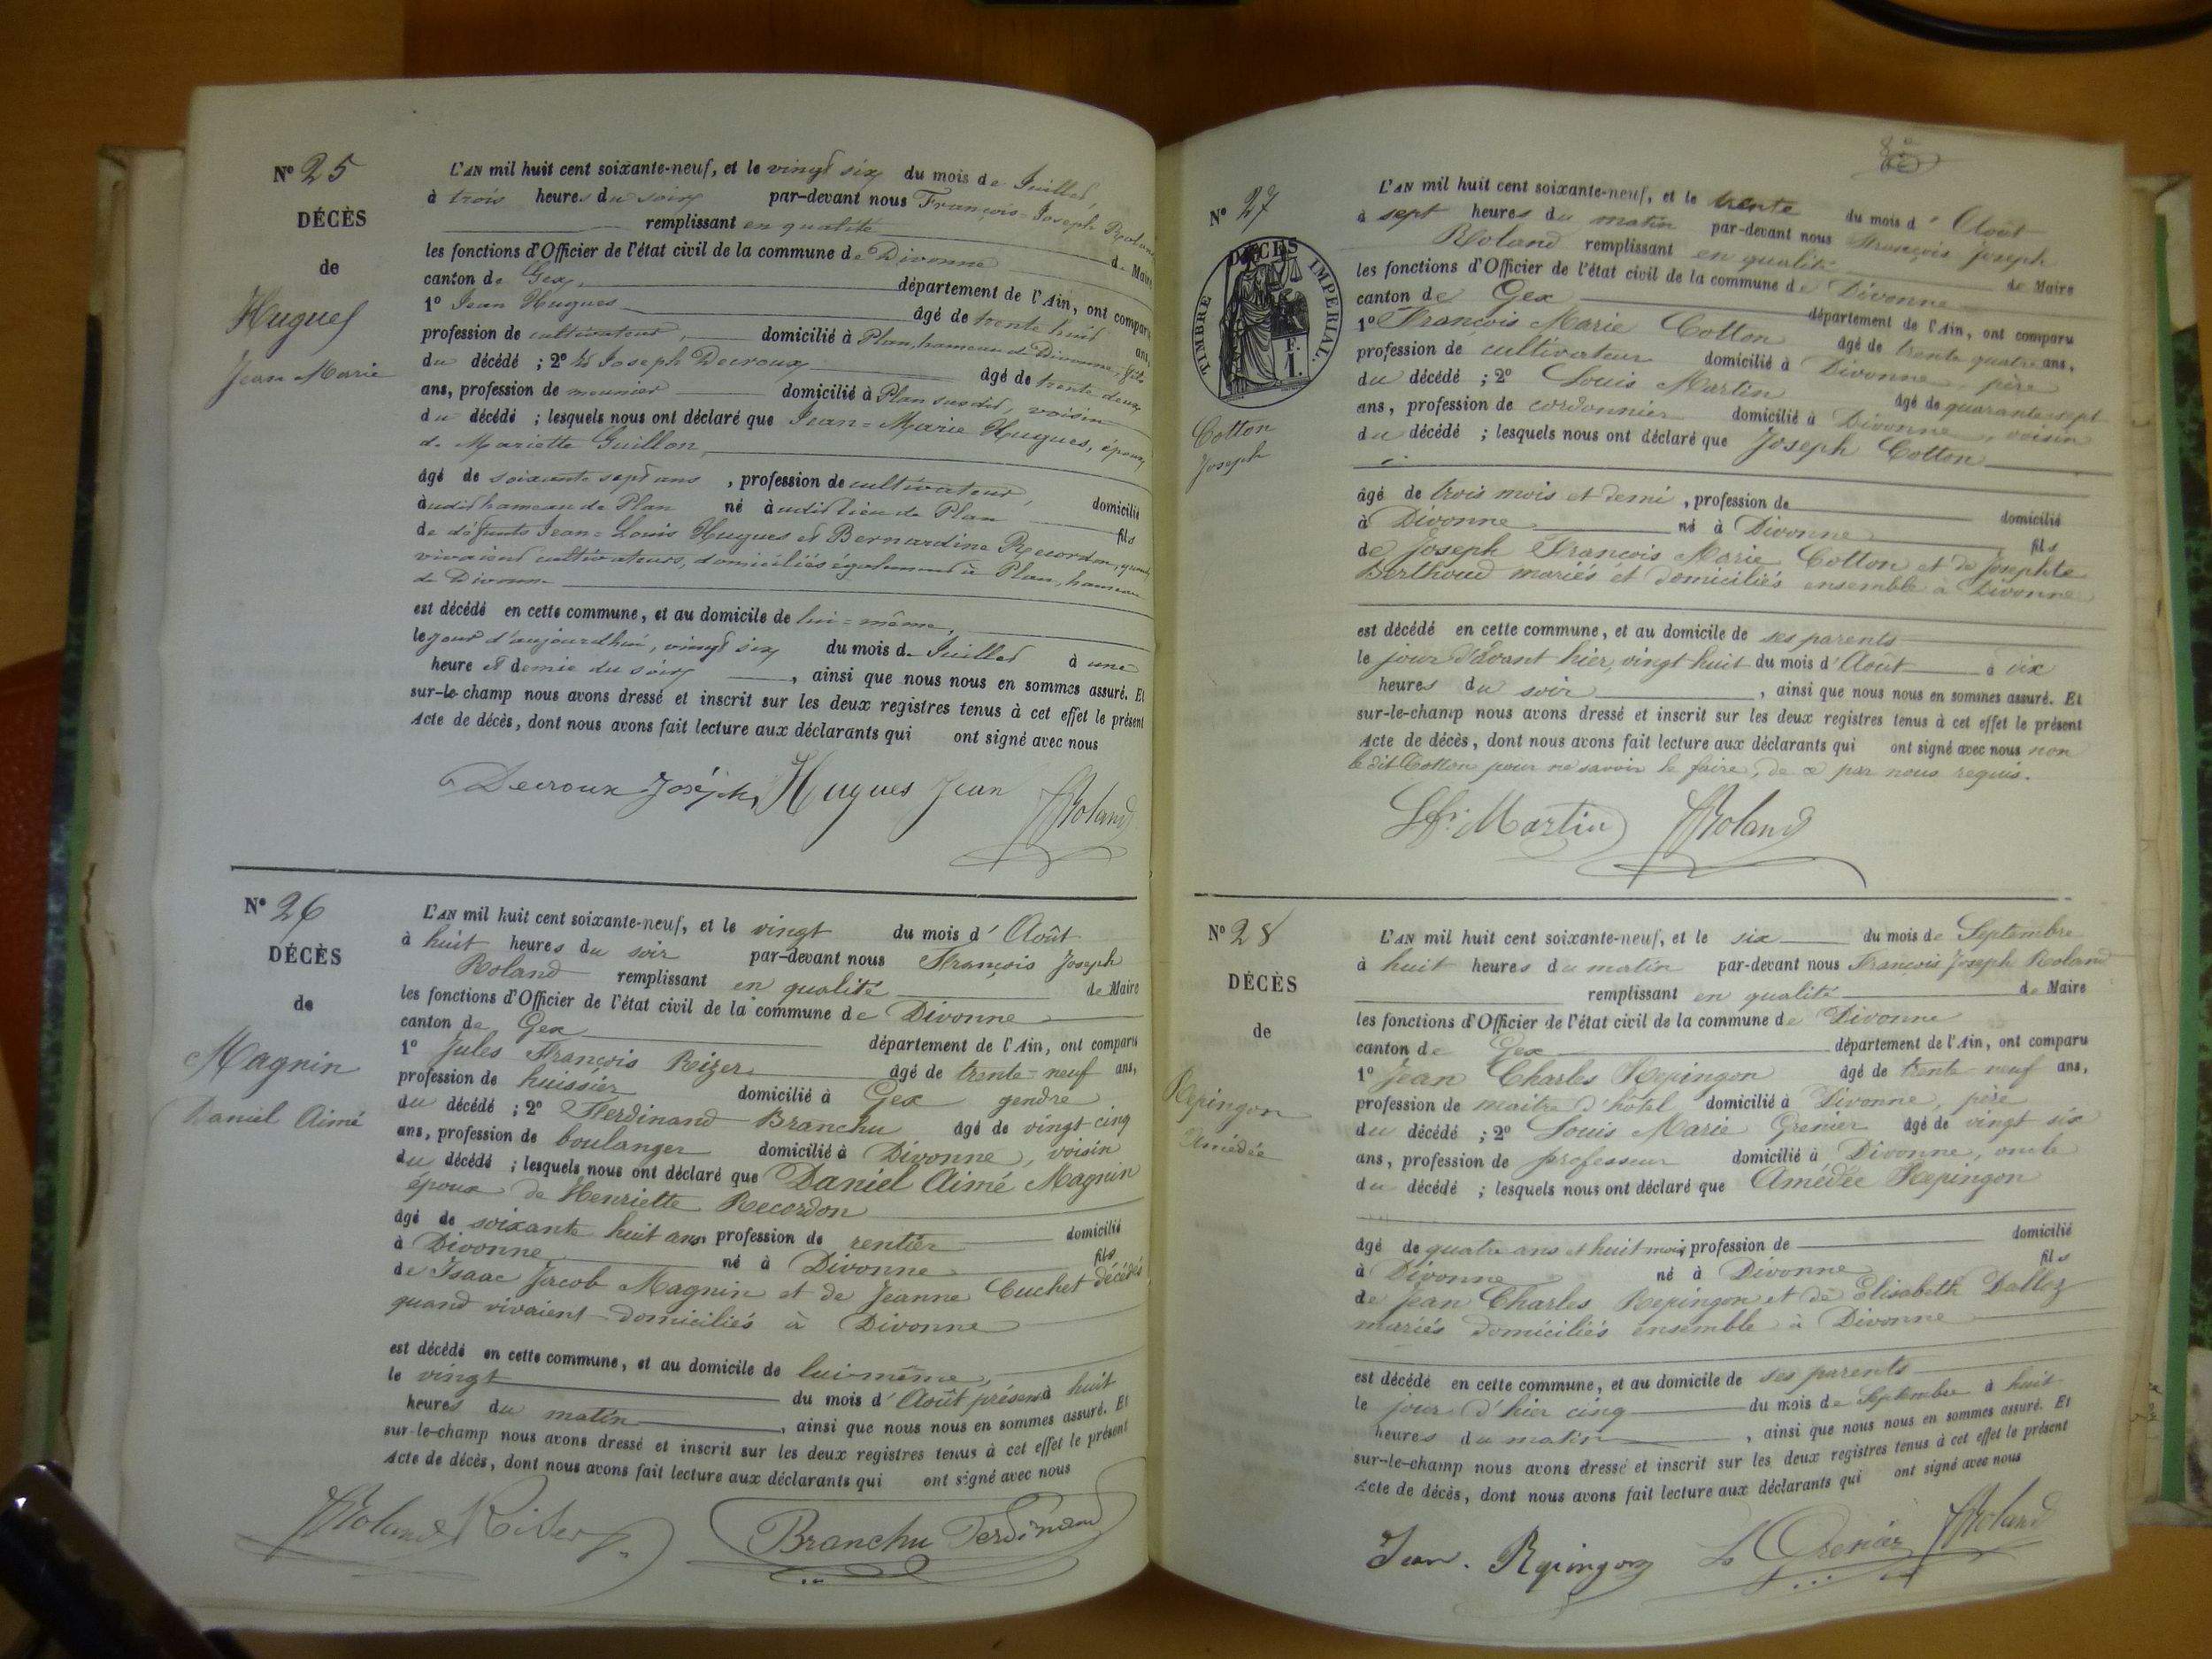 Nº 25
DÉCÈS
de
Hugues
Jean Marie
L'AN mil huit cent soixante-neuf, et le vingt six du mois de Juillet,
à trois heures du soir par-devant nous François-Joseph Roland
remplissant en qualité de Maire
les fonctions d'Officier de l'état civil de la commune de Divonne
canton de Gex, département de l'Ain, ont comparu
1º Jean Hugues âgé de trente huit ans,
profession de cultivateur, domicilié à Plan, hameau de Divonne, fils
du décédé ; 2º Joseph Decroux âgé de trente deux
ans, profession de meunier domicilié à Plan susdit, voisin
du décédé ; lesquels nous ont déclaré que Jean=Marie Hugues, époux
de Mariette Guillon,
âgé de soixante sept ans , profession de cultivateur, domicilié
audit hameau de Plan né audit lieu de Plan fils
de défunts Jean=Louis Hugues et Bernardine Recordon, quand
vivaient cultivateurs, domiciliés également à Plan, hameau
de Divonne
est décédé en cette commune, et au domicile de lui=même,
le jour d'aujourdhui, vingt six du mois de Juillet à une
heure et demie du soir , ainsi que nous nous en sommes assuré. Et
sur-le-champ nous avons dressé et inscrit sur les deux registres tenus à cet effet le présent
Acte de décès, dont nous avons fait lecture aux déclarants qui ont signé avec nous
Decroux Joséph Hugues Jean Roland
Nº 26
DÉCÈS
de
Magnin
Daniel Aimé
L'AN mil huit cent soixante-neuf, et le vingt du mois d'Août
à huit heures du soir par-devant nous François Joseph
Roland remplissant en qualité de Maire
les fonctions d'Officier de l'état civil de la commune de Divonne
canton de Gex département de l'Ain, ont comparu
1º Jules François Reizer âgé de trente=neuf ans,
profession de huissier domicilié à Gex gendre
du décédé ; 2º Ferdinand Branchu âgé de vingt cinq
ans, profession de boulanger domicilié à Divonne, voisin
du décédé ; lesquels nous ont déclaré que Daniel Aimé Magnin
époux de Henriette Recordon
âgé de soixante huit ans profession de rentier domicilié
à Divonne né à Divonne fils
de Isaac Jacob Magnin et de Jeanne Cuchet décédés
quand vivaient domiciliés à Divonne
est décédé en cette commune, et au domicile de lui-même,
le vingt du mois d'Août présent à huit
heures du matin , ainsi que nous nous en sommes assuré. Et
sur-le-champ nous avons dressé et inscrit sur les deux registres tenus à cet effet le présent
Acte de décès, dont nous avons fait lecture aux déclarants qui ont signé avec nous
Roland Branchu Ferdinand
Nº 27
DÉCÈS
TIMBRE IMPERIAL.
F.
1.
Cotton
Joseph
L'AN mil huit cent soixante-neuf, et le trente du mois d'Août
à sept heures du matin par-devant nous François Joseph
Roland remplissant en qualité de Maire
les fonctions d'Officier de l'état civil de la commune de Divonne
canton de Gex département de l'Ain, ont comparu
1º François Marie Cotton âgé de trente quatre ans,
profession de cultivateur domicilié à Divonne père
du décédé ; 2º Louis Martin âgé de quarante sept
ans, profession de cordonnier domicilié à Divonne, voisin
du décédé ; lesquels nous ont déclaré que Joseph Cotton
âgé de trois mois et demi , profession de domicilié
à Divonne né à Divonne fils
de Joseph François Marie Cotton et de Josephte
Berthoud mariés et domiciliés ensemble à Divonne
est décédé en cette commune, et au domicile de ses parents
le jour d'avant hier, vingt huit du mois d'Août à dix
heures du soir , ainsi que nous nous en sommes assuré. Et
sur-le-champ nous avons dressé et inscrit sur les deux registres tenus à cet effet le présent
Acte de décès, dont nous avons fait lecture aux déclarants qui ont signé avec nous non
le dit Cotton pour ne savoir le faire, de ce par nous requis.
Martin Roland
Nº 28
DÉCÈS
de
Repingon
Amédée
L'AN mil huit cent soixante-neuf, et le six du mois de Septembre
à huit heures du matin par-devant nous François Joseph Roland
remplissant en qualité de Maire
les fonctions d'Officier de l'état civil de la commune de Divonne
canton de Gex département de l'Ain, ont comparu
1º Jean Charles Repingon âgé de trente neuf ans,
profession de maitre d'hôtel domicilié à Divonne, père
du décédé ; 2º Louis Marie Grenier âgé de vingt six
ans, profession de professeur domicilié à Divonne, oncle
du décédé ; lesquels nous ont déclaré que Amédée Repingon
âgé de quatre ans et huit mois profession de domicilié
à Divonne né à Divonne fils
de Jean Charles Repingon et de Elisabeth Dalloz
mariés domiciliés ensemble à Divonne
est décédé en cette commune, et au domicile de ses parents
le jour d'hier cinq du mois de Septembre à huit
heures du matin , ainsi que nous nous en sommes assuré. Et
sur-le-champ nous avons dressé et inscrit sur les deux registres tenus à cet effet le présent
Acte de décès, dont nous avons fait lecture aux déclarants qui ont signé avec nous
Jean. Repingon L Grenier Roland